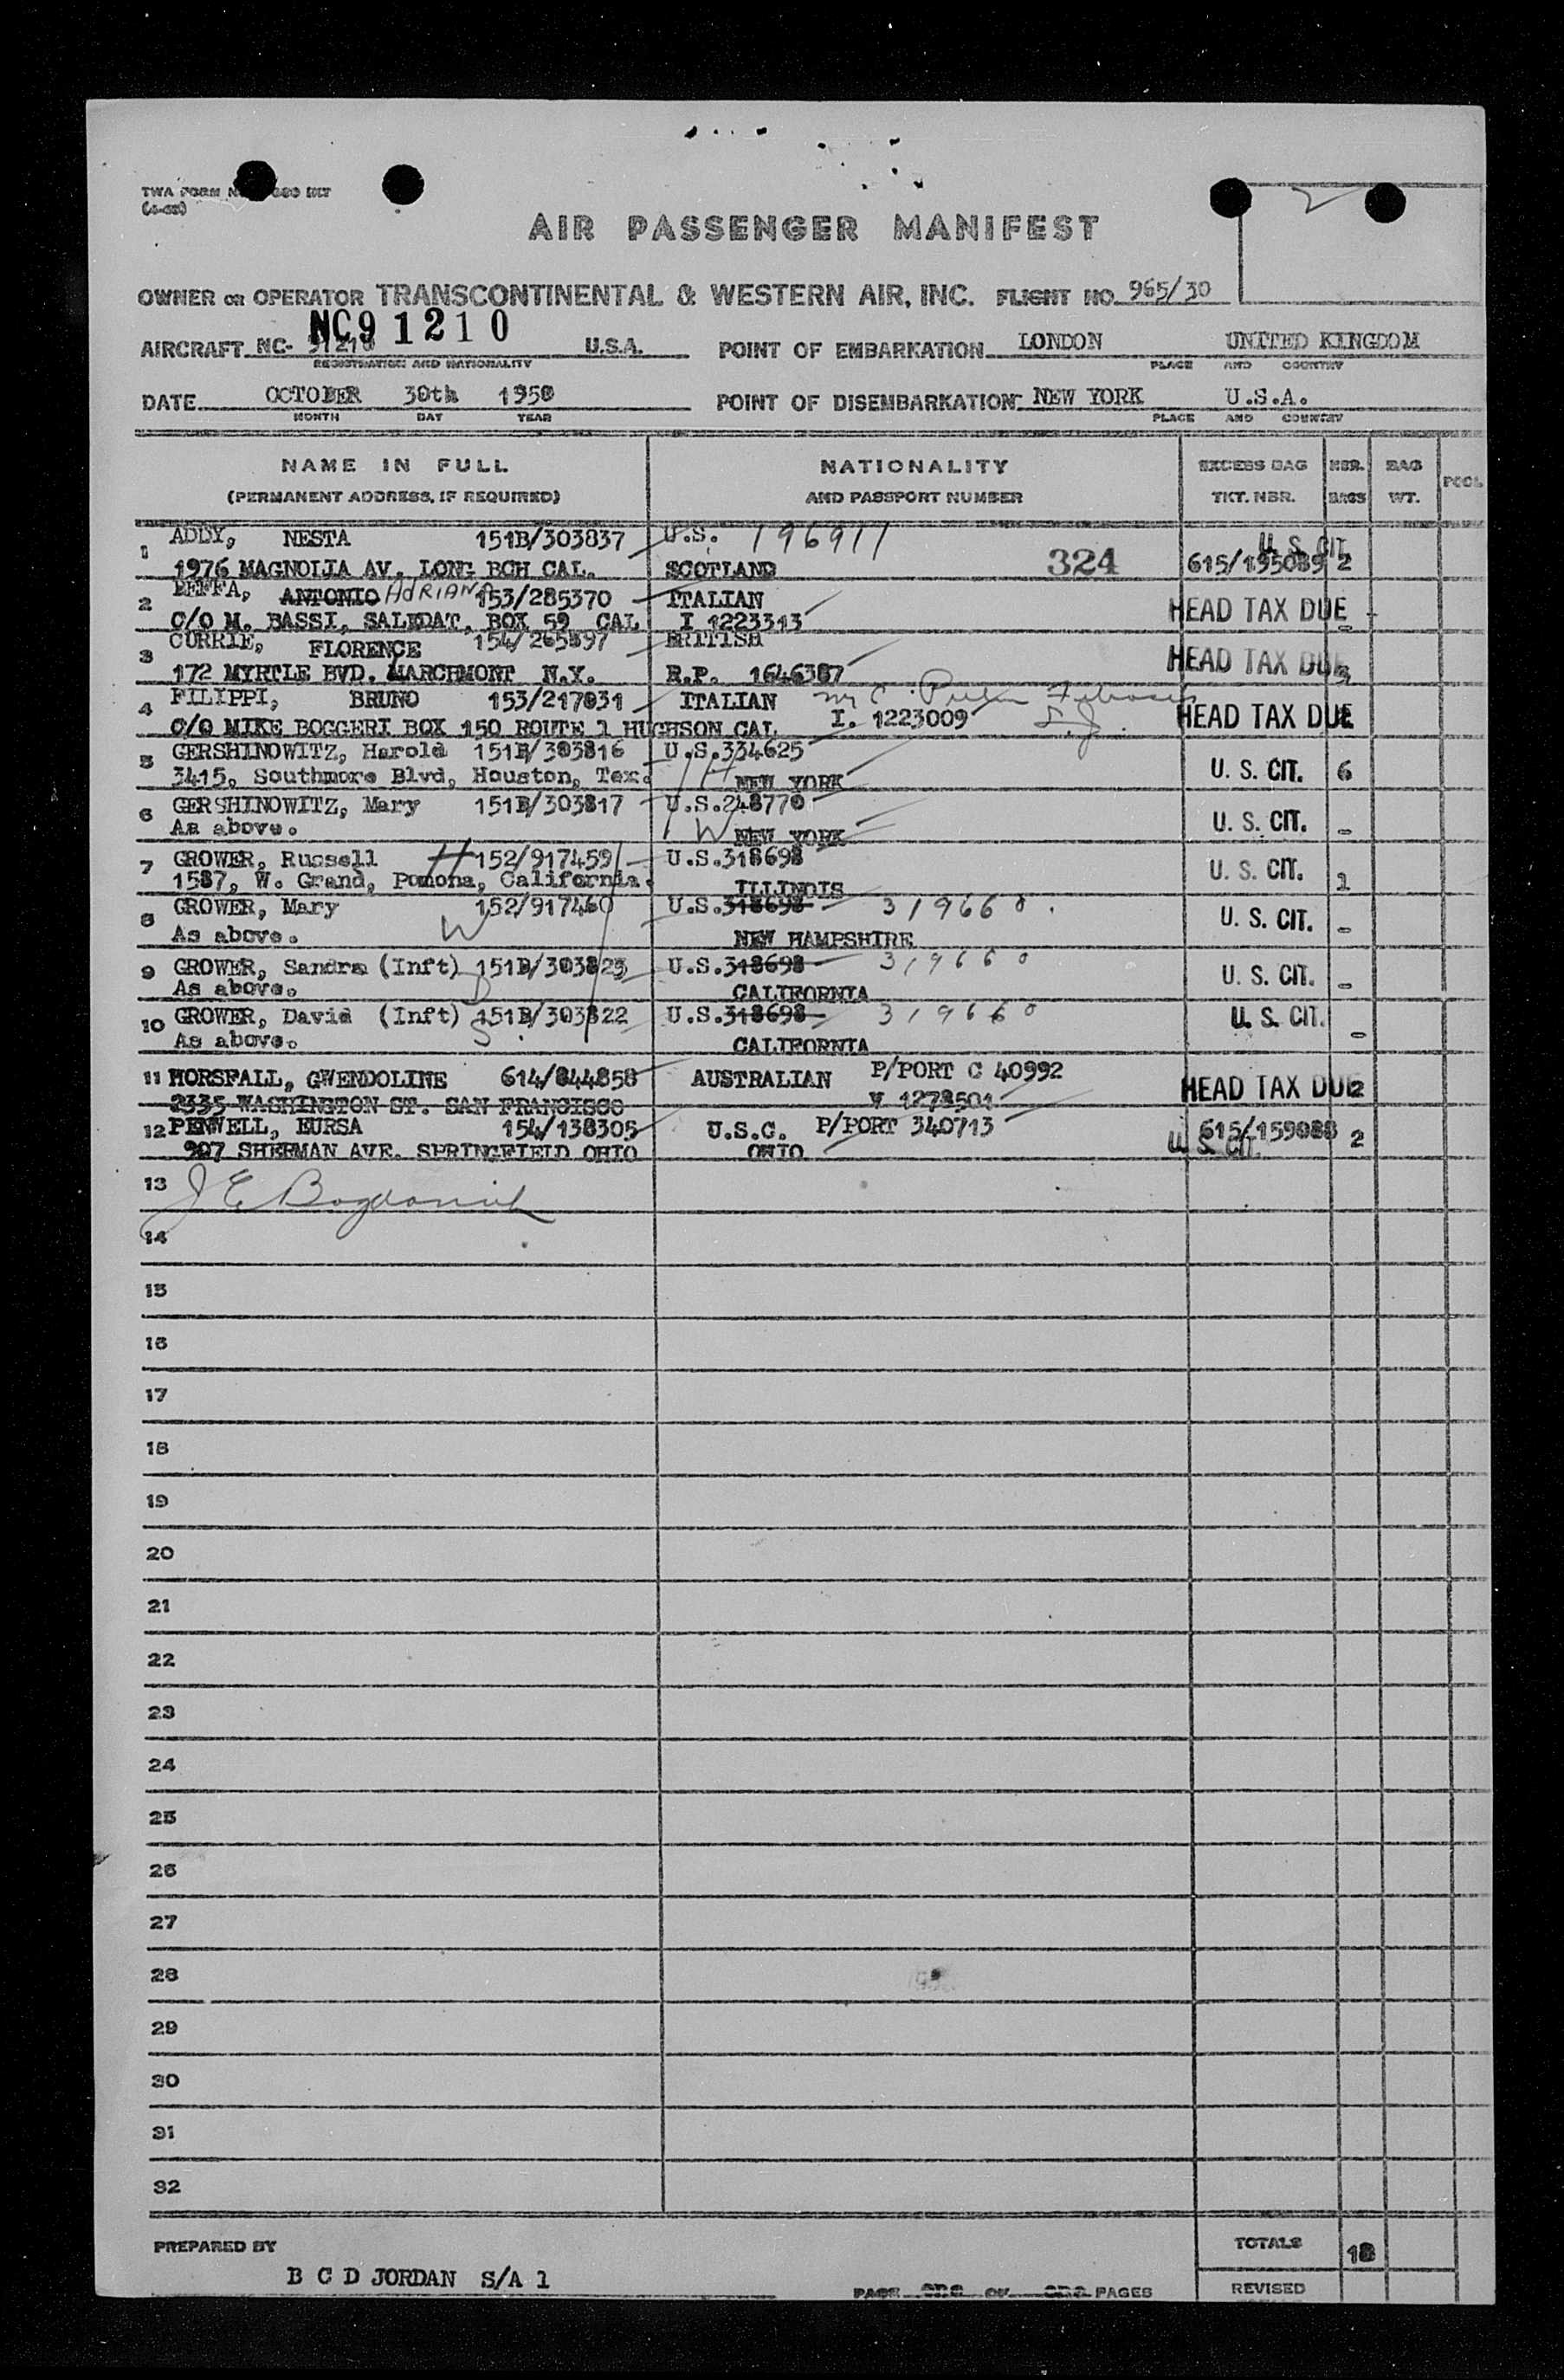 TWA FORM
AIR PASSENGER MANIFEST
OWNER OR OPERATOR TRANSCONTINENTAL & WESTERN AIR, INC. FLIGHT NO. 965/30
NC91210
AIRCRAFT NC- 91210 U.S.A. POINT OF EMBARKATION LONDON UNITED KINGDOM
REGISTRATION AND NATIONALITY PLACE AND COUNTRY
DATE OCTOBER 30th 1950 POINT OF DISEMBARKATION NEW YORK U.S.A.
MONTH DAY YEAR PLACE AND COUNTRY
NAME IN FULL NATIONALITY EXCESS BAG NBR. BAG POOL
(PERMANENT ADDRESS, IF REQUIRED) AND PASSPORT NUMBER TKT. NBR. BAGS WT.
1 ADDY, NESTA 151B/303837 U.S. 196911 U.S. CIT.
1976 MAGNOLIA AV. LONG BCH CAL. SCOTLAND 324 615/195089 2
2 BEFFA, ANTONIO ADRIANA 153/285370 ITALIAN HEAD TAX DUE -
C/O M. BASSI, SALEDAT, BOX 59 CAL I 1223313
3 CURRIE, FLORENCE 154/265897 BRITISH HEAD TAX DUE
172 MYRTLE BVD. MARCHMONT N.Y. R.P. 1646387
4 FILIPPI, BRUNO 153/217031 ITALIAN
C/O MIKE BOGGERI BOX 150 ROUTE 1 HUGHSON CAL I. 1223009 HEAD TAX DUE
5 GERSHINOWITZ, Harold 151B/303816 U.S.334625
3415, Southmore Blvd, Houston, Tex. H NEW YORK U. S. CIT. 6
6 GERSHINOWITZ, Mary 151B/303817 U.S.248770
As above. W NEW YORK U. S. CIT. -
7 GROWER, Russell H 152/917459 U.S.318698
1587, W. Grand, Pomona, California. ILLINOIS U. S. CIT. 1
8 GROWER, Mary W 152/917460 U.S.318698 319660.
As above. NEW HAMPSHIRE U. S. CIT. -
9 GROWER, Sandra (Inft) 151B/303823 U.S.318698 319660
As above. D CALIFORNIA U. S. CIT. -
10 GROWER, David (Inft) 151B/303822 U.S.318698 319660
As above. S CALIFORNIA U. S. CIT. -
11 HORSFALL, GWENDOLINE 614/844858 AUSTRALIAN P/PORT C 40992
2335 WASHINGTON ST. SAN FRANCISCO V 1278501 HEAD TAX DUE 2
12 PENWELL, EURSA 154/138305 U.S.C. P/PORT 340713 615/159088 2
907 SHERMAN AVE. SPRINGFIELD OHIO OHIO U. S. CIT.
13 J E Bogdanich
14
15
16
17
18
19
20
21
22
23
24
25
26
27
28
29
30
31
32
PREPARED BY TOTALS 18
B C D JORDAN S/A 1 PAGE one OF one PAGES REVISED